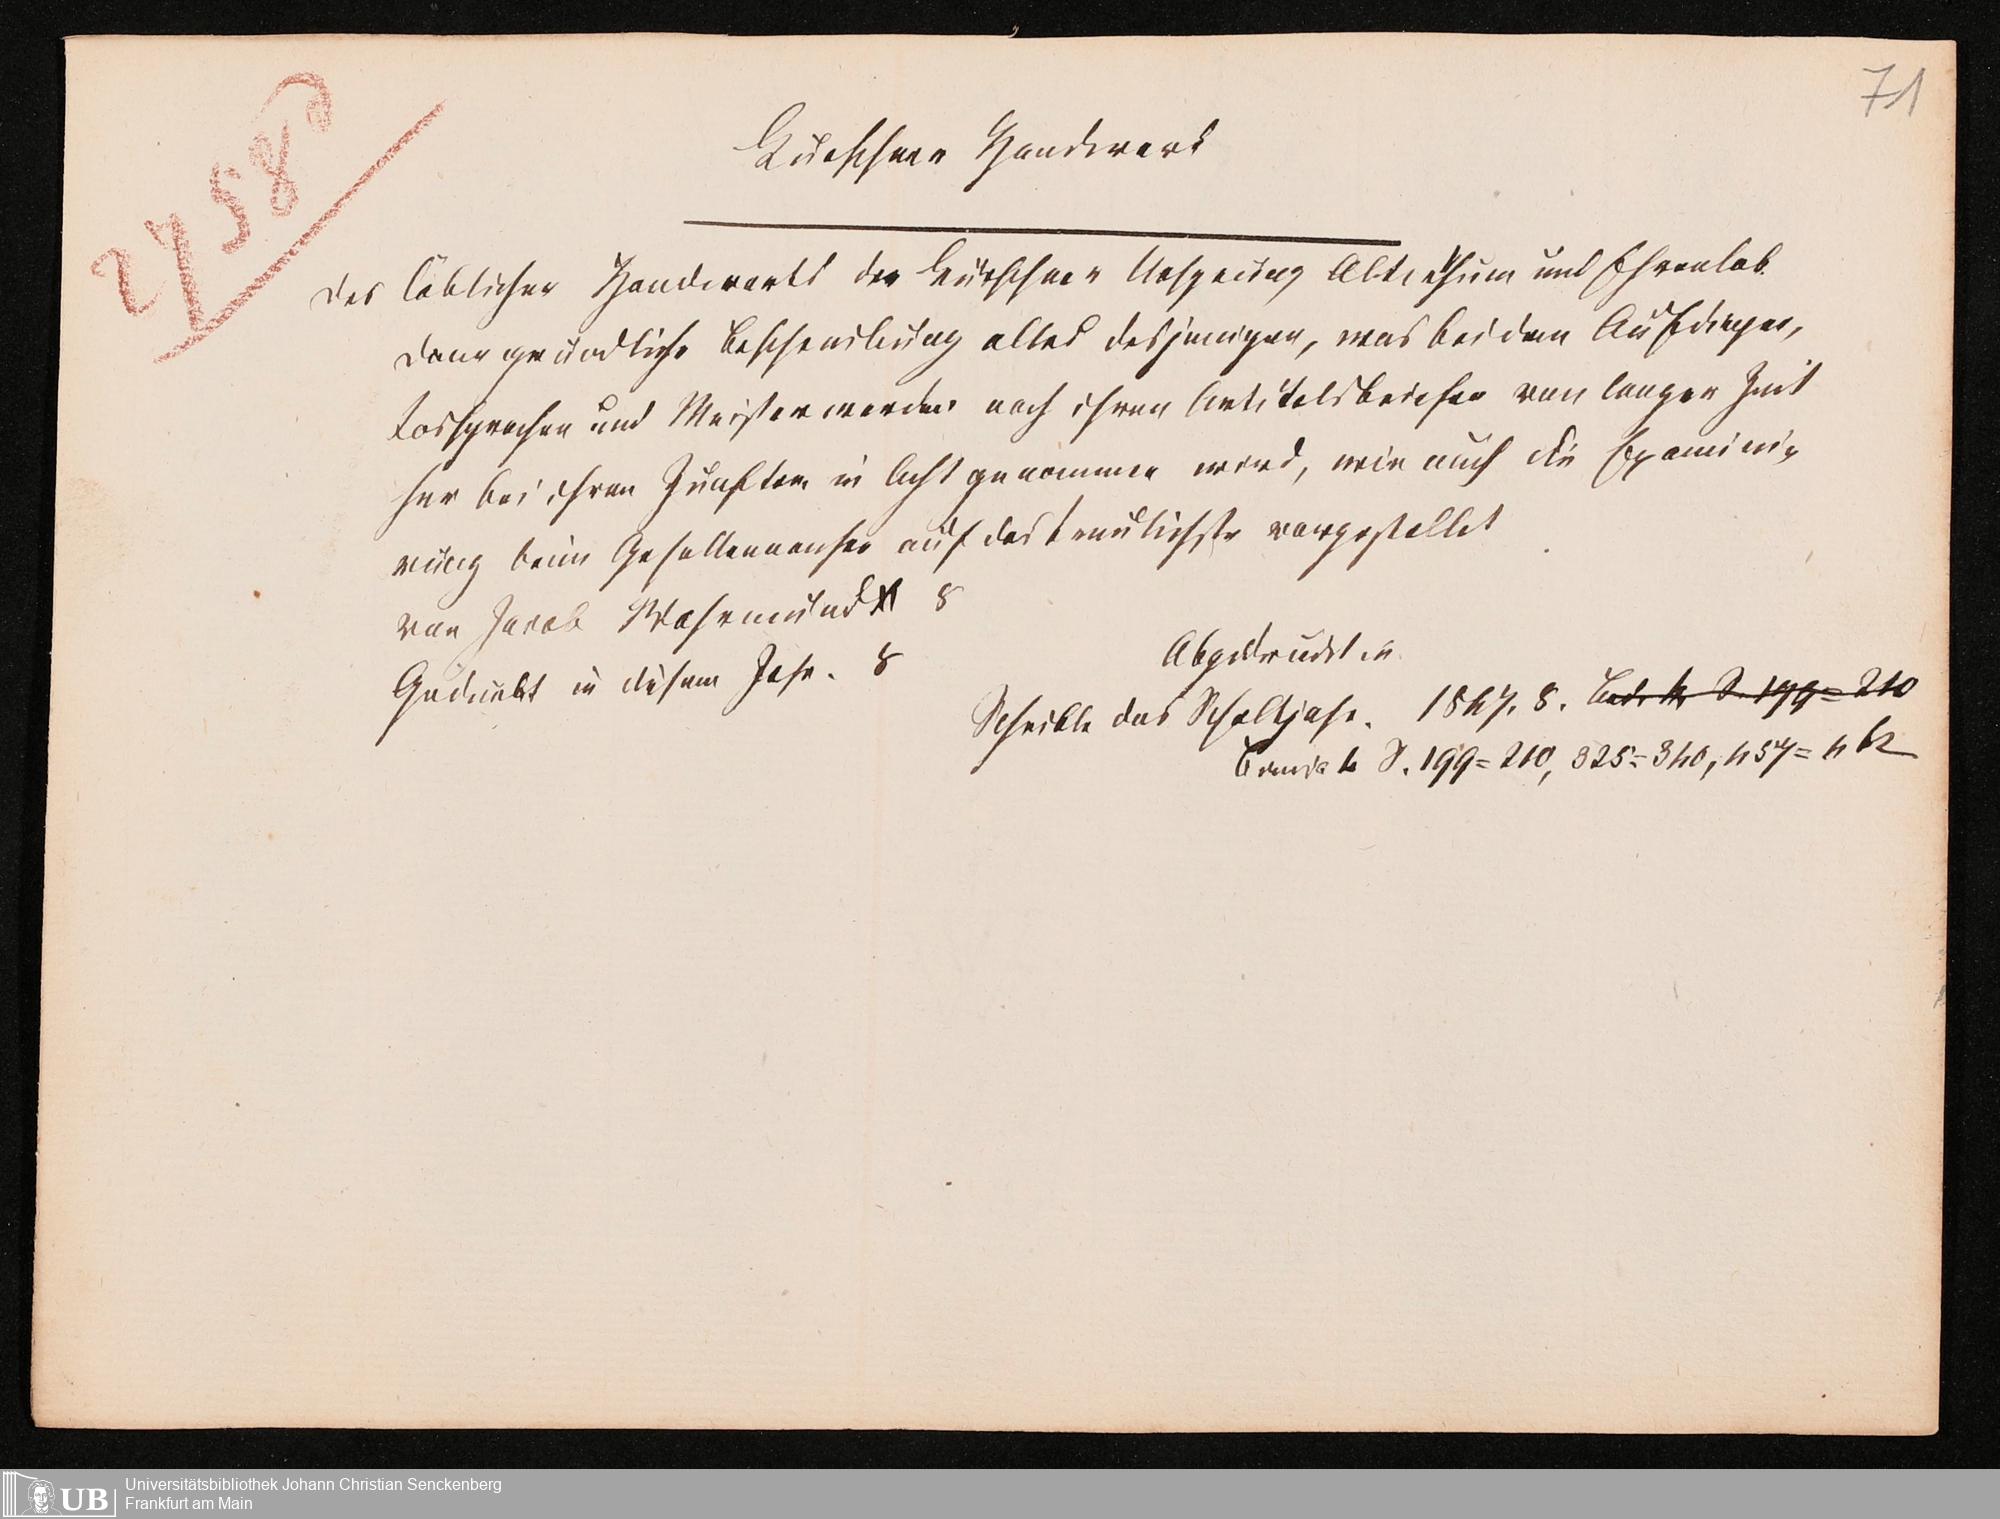 71
2758
Kürschner Handwerk
Des löblichen Handwerks der Kürschner Ursprung Alterthum und Ehrenlob
dann gründliche Beschreibung alles desjenigen, was bei dem Aufdingen,
Lossprechen und Meisterwerden nach ihren Artikelsbriefen von langer Zeit
her bei ihren Zunften in Acht genommen wird, wie auch die Examini-
rung beim Gesellenmachen auf das treulichste vorgestellet
von Jacob Wahrmund 8
Gedruckt in diesem Jahr. 8
Abgedruckt in
Scheible das Schaltjahr. 1847. 8. S. 199=210
Band 4 S. 199=210, 325=340, 457=
Universitätsbibliothek Johann Christian Senckenberg
Frankfurt am Main
UB